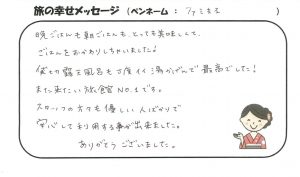 旅の幸せメッセージ（ペンネーム：ファミまま）
晩ごはんも朝ごはんも、とっても美味しくて、
ごはんをおかわりしちゃいました！
貸切露天風呂も丁度イイ湯かげんで最高でした！
また来たい旅館NO.1です。
スタッフの方々も優しい人ばかりで
安心して利用する事が出来ました。
ありがとうございました。